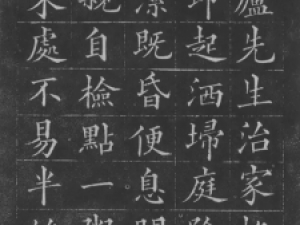 廬先生治家格
即起洒埽庭除
潔既昏便息關
親自檢點一粥
來處不易半絲